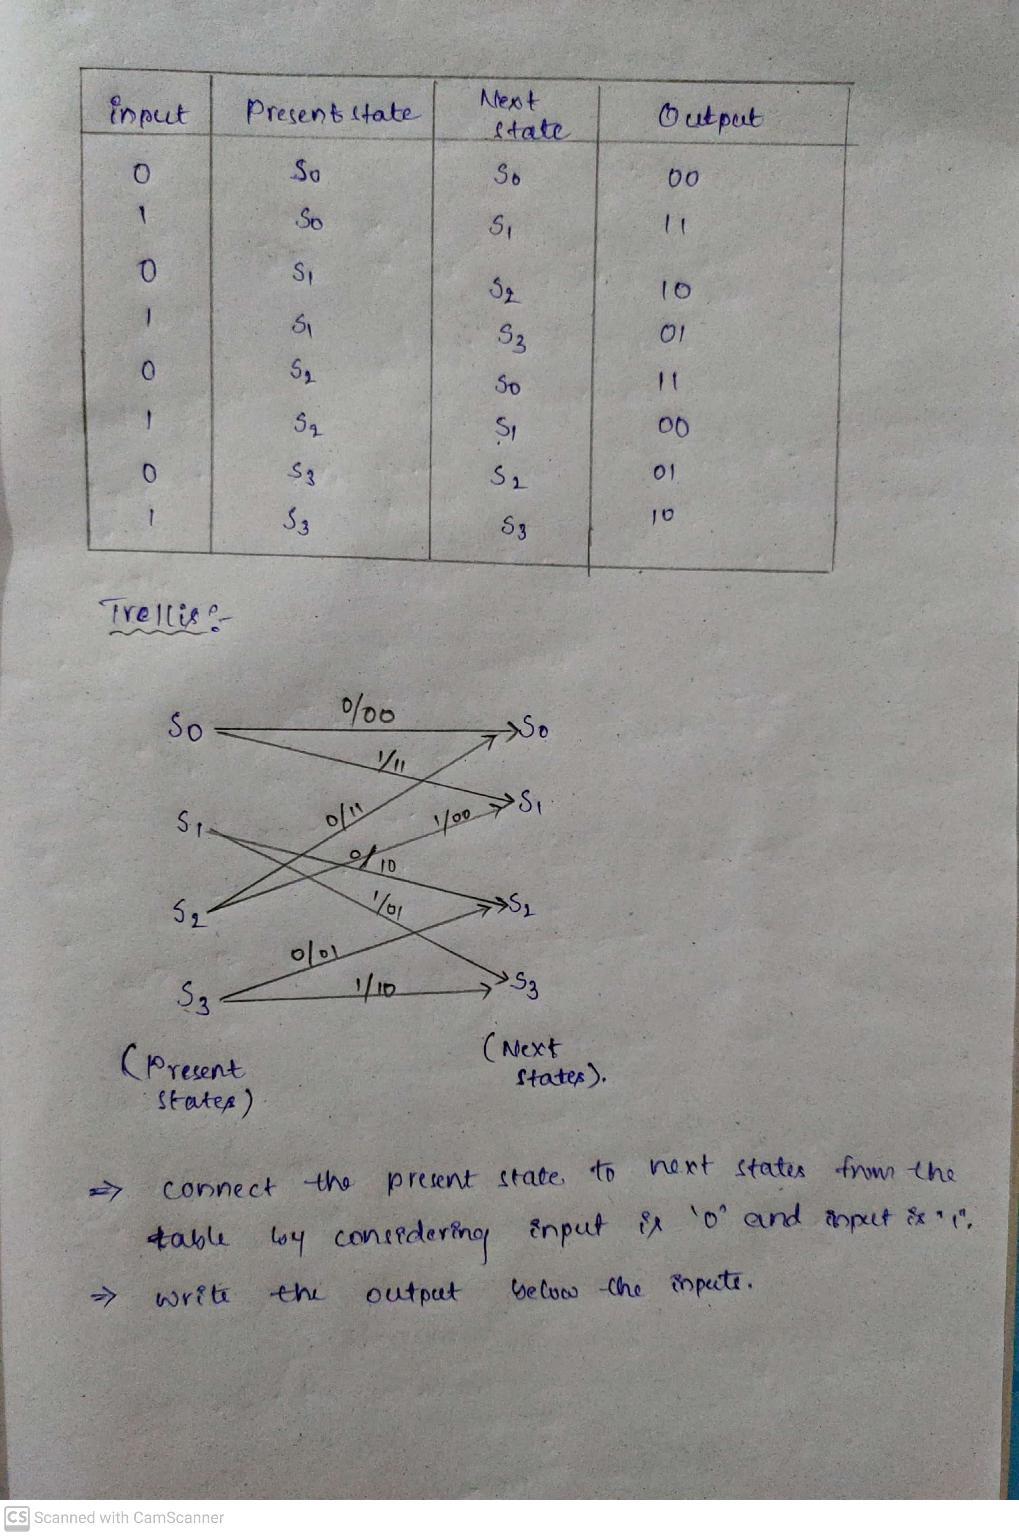 input Present state Next state Output
0 S0 S0 00
1 S0 S1 11
0 S1 S2 10
1 S1 S3 01
0 S2 S0 11
1 S2 S1 00
0 S3 S2 01
1 S3 S3 10
Trellis :-
S0 0/00 S0
1/11
S1 0/11 1/00 S1
0/10
S2 1/01 S2
0/01
S3 1/10 S3
(Present states)
(Next states).
⇒ connect the present state to next states from the
table by considering input is '0' and input is "1".
⇒ write the output below the inputs.
CS Scanned with CamScanner